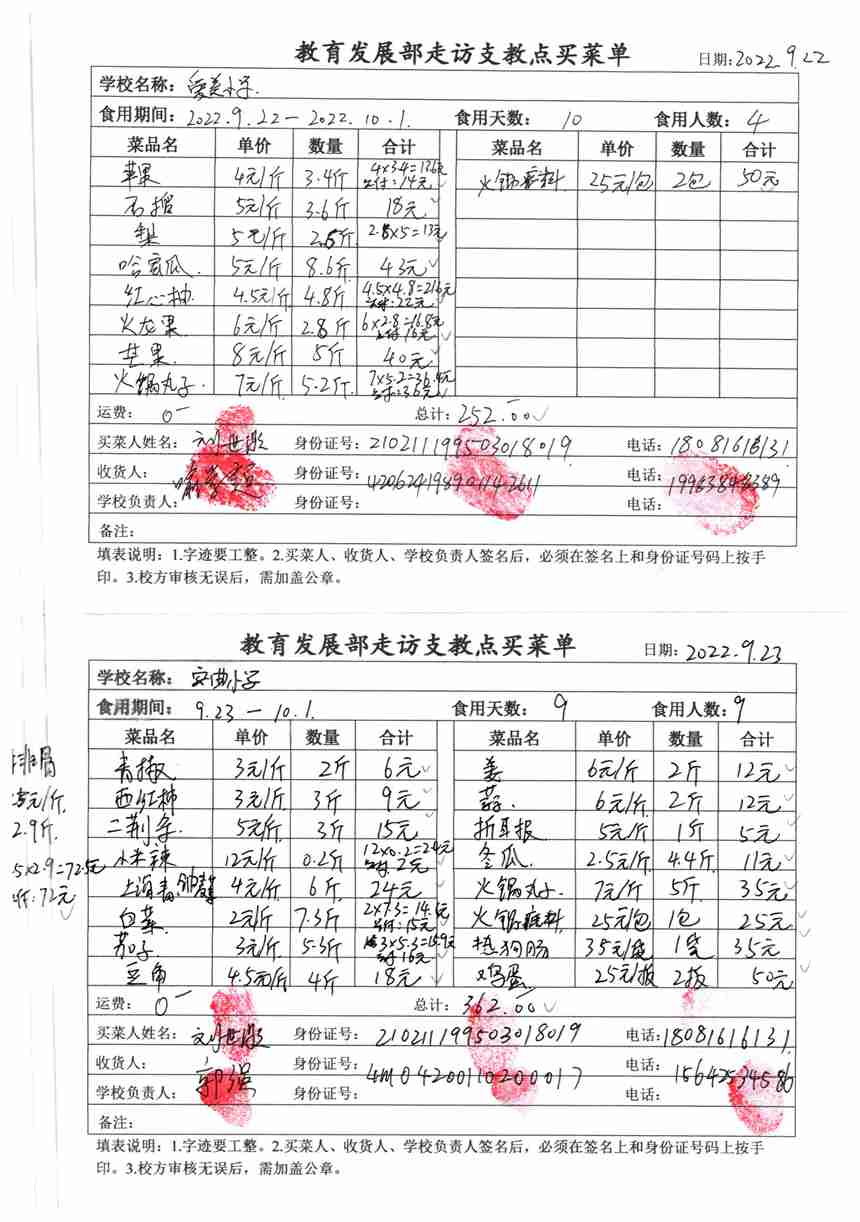 教育发展部走访支教点买菜单 日期:2022.9.22
学校名称: 小学.
食用期间: 2022.9.22-2022.10.1. 食用天数: 10 食用人数: 4
菜品名 单价 数量 合计 菜品名 单价 数量 合计
苹果 4元/斤 3.4斤 4x3.4=13.6元 实付:14元 火锅底料 25元/包 2包 50元
石榴 5元/斤 3.6斤 18元
梨 5元/斤 2.6斤 2.6x5=13元
哈密瓜. 5元/斤 8.6斤 43元
红心柚. 4.5元/斤 4.8斤 4.5x4.8=21.6元 实付:22元
火龙果 6元/斤 2.8斤 6x2.8=16.8元 实付16元
芒果. 8元/斤 5斤 40元
火锅丸子. 7元/斤 5.2斤. 7x5.2=36.4元 实付:36元
运费: 0 总计: 252.00
买菜人姓名: 刘世 身份证号: 210211199503018019 电话: 18081616131
收货人: 身份证号: 电话: 19983848389
学校负责人: 身份证号: 电话:
备注:
填表说明：1.字迹要工整。2.买菜人、收货人、学校负责人签名后，必须在签名上和身份证号码上按手
印。3.校方审核无误后，需加盖公章。
教育发展部走访支教点买菜单 日期: 2022.9.23
学校名称: 小学
食用期间: 9.23-10.1. 食用天数: 9 食用人数: 9
菜品名 单价 数量 合计 菜品名 单价 数量 合计
青椒 3元/斤 2斤 6元 姜 6元/斤 2斤 12元
西红柿 3元/斤. 3斤 9元 蒜. 6元/斤. 2斤 12元
二荆条. 5元/斤 3斤 15元 折耳根 5元/斤 1斤 5元
小米辣 12元/斤 0.2斤 12x0.2=2.4元 实付2元 冬瓜. 2.5元/斤. 4.4斤 11元
上海青. 4元/斤 6斤 24元 火锅丸子. 7元/斤 5斤 35元
白菜 2元/斤 7.3斤 2x7.3=14.6元 实付:15元 火锅底料 25元/包 1包 25元
茄子. 3元/斤. 5.3斤 3x5.3=15.9元 实付16元 热狗肠 35元/袋 1袋 35元
豆角 4.5元/斤 4斤 18元 鸡蛋 25元/板 2板 50元
排骨
25元/斤.
2.9斤.
25x2.9=72.5元
实付:72元
运费: 0 总计: 362.00
买菜人姓名: 刘世 身份证号: 210211199503018019 电话: 18081616131
收货人: 郭强 身份证号: 电话: 15642534586
学校负责人: 身份证号: 电话:
备注:
填表说明：1.字迹要工整。2.买菜人、收货人、学校负责人签名后，必须在签名上和身份证号码上按手
印。3.校方审核无误后，需加盖公章。